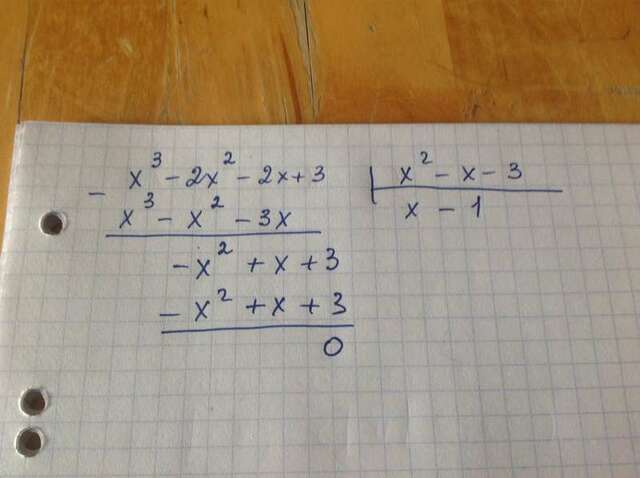 x³ - 2x² - 2x + 3 | x² - x - 3
- x³ - x² - 3x x - 1
- x² + x + 3
- x² + x + 3
0